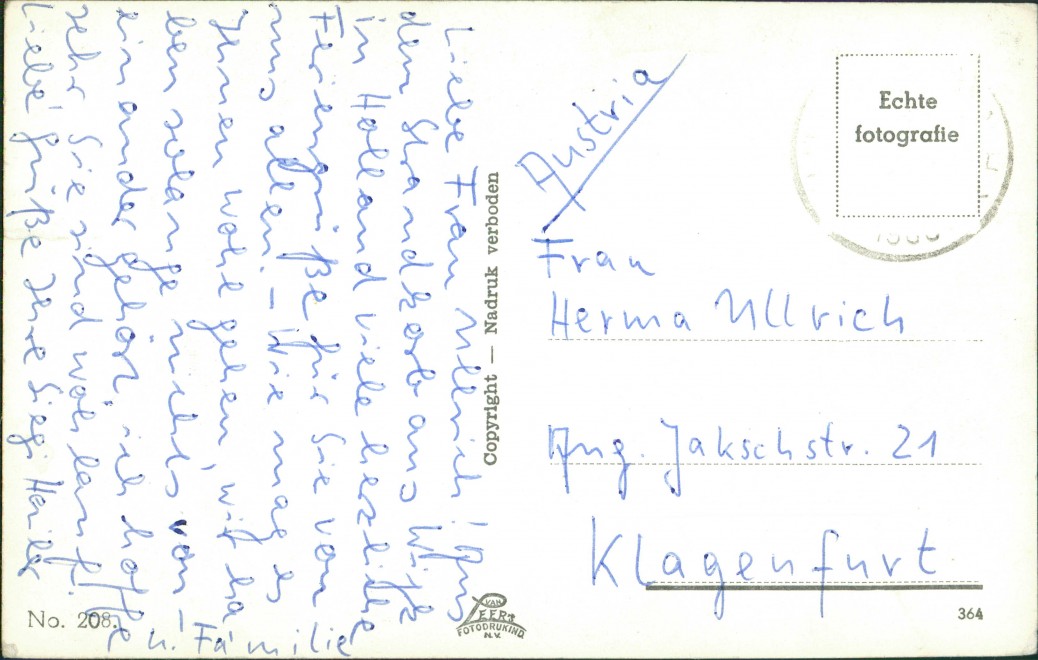 Liebe Frau Ullrich! Aus
dem Strandkorb aus Wijk
in Holland viele herzliche
Feriengrüße für Sie von
uns allen – Wie mag es
Ihnen wohl gehen, wir ha-
ben solange nichts von-
einander gehört, ich hoffe
sehr Sie sind wohlauf!
Liebe Grüße Ihre Siegi
u. Familie
Copyright — Nadruk verboden
Austria
Echte
fotografie
Frau
Herma Ullrich
Aug. Jakschstr. 21
Klagenfurt
No. 208.
VAN
LEER's
FOTODRUKIND.
N.V.
364